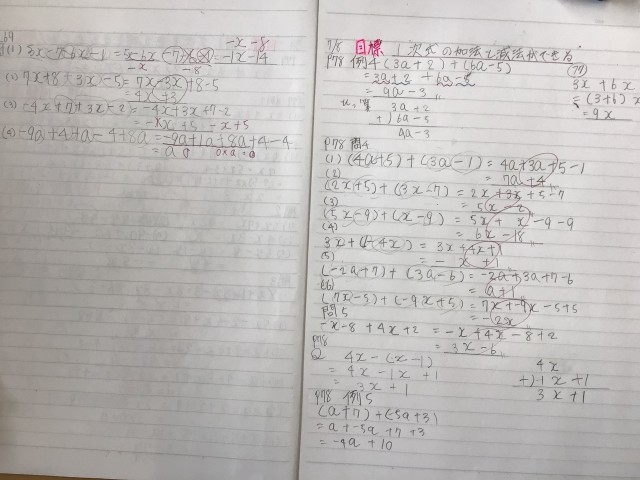 (2) 7x+8-3x-5=7x-3x+8-5
=4x+3
(3) -4x+7+3x-2=-4x+3x+7-2
-x+5
(4) -9a+4+a-4+8a=-9a+1a+8a+4-4
0×a=0
7/8 目標 1次式の加法と減法ができる
P78 例4 (3a+2)+(6a-5)
=3a+2+6a-5
=9a-3
3a+2
+)6a-5
9a-3
3x+6x
=(3+6)x
=9x
P78 問4
(1) (4a+5)+(3a-1)=4a+3a+5-1
=7a+4
(2)
(2x+5)+(3x-7)=2x+3x+5-7
=5x-2
(3)
(5x-9)+(x-9)=5x+x-9-9
=6x-18
(4)
(5)
(-2a+7)+(3a-6)=-2a+3a+7-6
=a+1
(6)
(7x-5)+(-9x+5)=7x+-9x-5+5
=-2x
問5
-x-8+4x+2=-x+4x-8+2
=3x-6
P78
Q 4x-(x-1)
=4x-1x+1
=3x+1
4x
+)-1x+1
3x+1
P78 例5
(a+7)+(-5a+3)
=a+-5a+7+3
=-4a+10